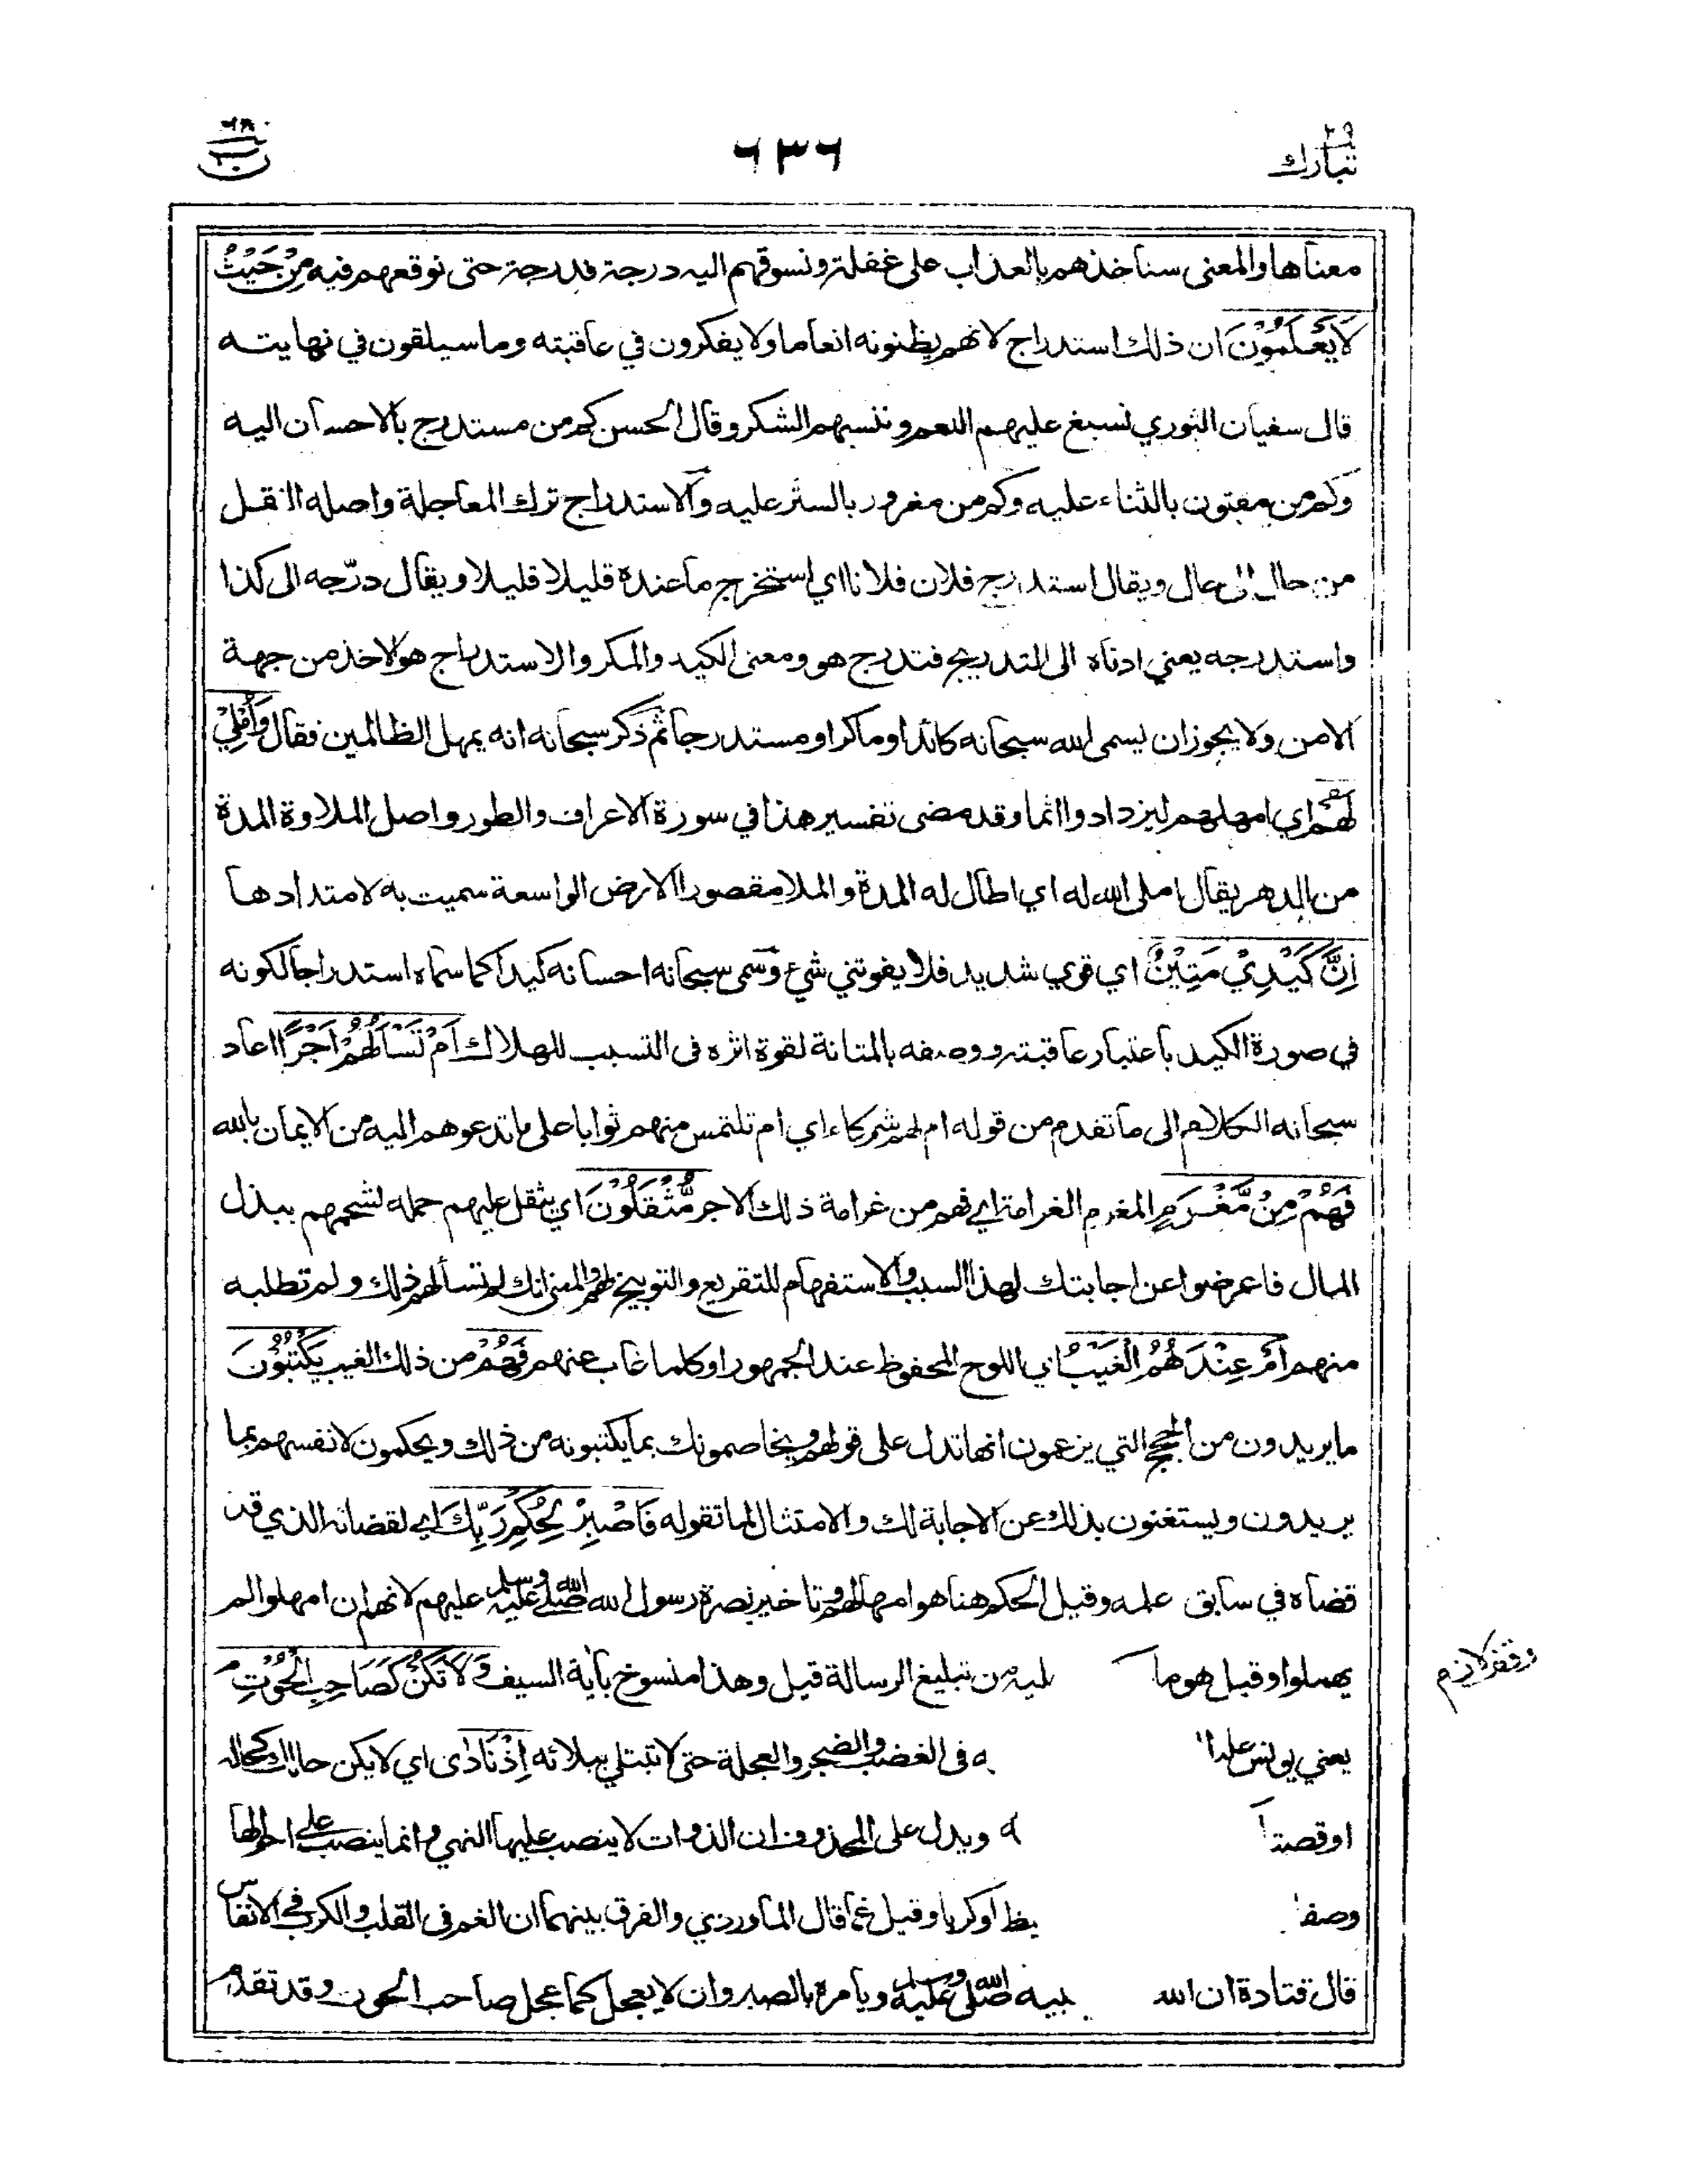 تبارك ٢٩
٦٣٦
ن ٦٨
معناها والمعنى سنأخذهم بالعذاب على غفلة ونسوقهم اليه درجة فدرجة حتى نوقعهم فيه مِنْ حَيْثُ
لَا يَعْلَمُوْنَ ان ذلك استدراج لانهم يظنونه انعاما ولا يفكرون في عاقبته وما سيلقون في نهايته
قال سفيان الثوري نسبغ عليهم النعم وننسيهم الشكر وقال الحسن كم من مستدرج بالاحسان اليه
وكم من مفتون بالثناء عليه وكم من مغرور بالستر عليه والاستدراج ترك المعاجلة واصله النقل
من حال الى حال ويقال استدرج فلان فلانا اي استخرج ما عنده قليلا قليلا ويقال درّجه الى كذا
واستدرجه يعني ادناه الى التدريج فتدرج هو ومعنى الكيد والمكر والاستدراج هو لاخذ من جهة
الامن ولا يجوز ان يسمى الله سبحانه كائدا وماكرا ومستدرجا ثم ذكر سبحانه انه يمهل الظالمين فقال وَاُمْلِيْ
لَهُمْ اي امهلهم ليزدادوا اثما وقد مضى تفسير هذا في سورة الاعراف والطور واصل الملاوة المدة
من الدهر يقال املى الله له اي اطال له المدة والملا مقصورا الارض الواسعة سميت به لامتدادها
اِنَّ كَيْدِيْ مَتِيْنٌ اي قوي شديد فلا يفوتني شيء وسمى سبحانه احسانه كيدا كما سماه استدراجا لكونه
في صورة الكيد باعتبار عاقبته ووصفه بالمتانة لقوة اثره فى التسبب للهلاك اَمْ تَسْاَلُهُمْ اَجْرًا اعاد
سبحانه الكلام الى ما تقدم من قوله ام لهم شركاء اي ام تلتمس منهم ثوابا على ما تدعوهم اليه من الايمان بالله
فَهُمْ مِنْ مَّغْرَمٍ المغرم الغرامة اي فهم من غرامة ذلك الاجر مُّثْقَلُوْنَ اي يثقل عليهم حمله لشحهم ببذل
المال فاعرضوا عن اجابتك لهذا السبب والاستفهام للتقريع والتوبيخ لهم والمعنى انك لم تسألهم ذلك ولم تطلبه
منهم اَمْ عِنْدَهُمُ الْغَيْبُ اي اللوح المحفوظ عند الجمهور او كلما غاب عنهم فَهُمْ من ذلك الغيب يَكْتُبُوْنَ
ما يريدون من الحجج التي يزعمون انها تدل على قولهم ويخاصمونك بما يكتبونه من ذلك ويحكمون لانفسهم بما
يريدون ويستغنون بذلك عن الاجابة لك والامتثال لما تقوله فَاصْبِرْ لِحُكْمِ رَبِّكَ اي لقضائه الذي قد
قضاه في سابق علمه وقيل الحكم هنا هو امهالهم وتاخير نصرة رسول الله صلى الله عليه وسلم عليهم لانهم ان امهلوا لم
يهملوا وقيل هو ما ليه من تبليغ الرسالة قيل وهذا منسوخ بآية السيف وَلَا تَكُنْ كَصَاحِبِ الْحُوْتِ م
وقف لازم
يعني يونس عليه ا ه فى الغضب والضجر والعجلة حتى لا تبتلي ببلائه اِذْ نَادٰى اي لا يكن حالك كحاله
او قصتا ه ويدل على المحذوف ان الذوات لا ينصب عليها النهي وانما ينصب على احوالها
وصفا يظا او كربا وقيل غما قال الماوردي والفرق بينهما ان الغم فى القلب والكرب في الانفاس
قال قتادة ان الله بيه صلى الله عليه وسلم ويامره بالصبر وان لا يعجل كما عجل صاحب الحوت وقد تقدم